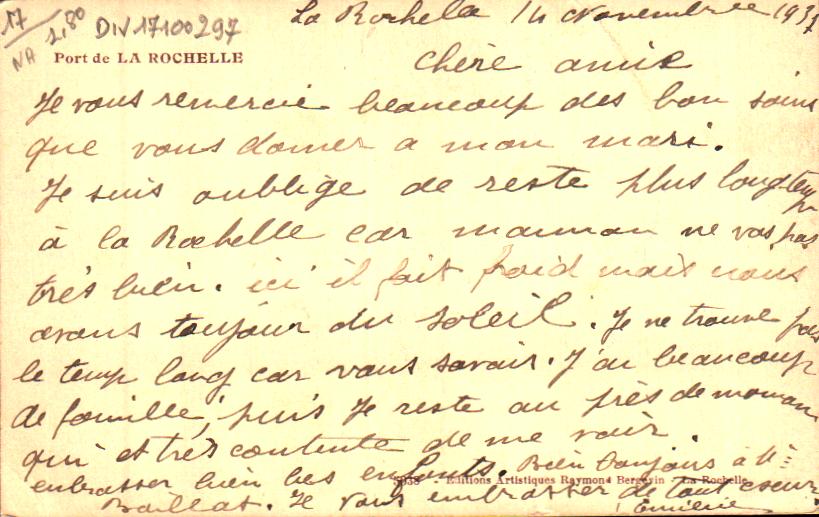 17
2,80
NA
DIV17100297
La Rochelle 14 Novembre 1937
Port de LA ROCHELLE
Chère amie
Je vous remercie beaucoup des bon soins
que vous donner a mon mari.
Je suis oublige de reste plus long-temp
à la Rochelle car maman ne vas pas
très bien. ici il fait froid mais nous
avons toujour du soleil. Je ne trouve pas
le temp long car vous savair. J'ai beaucoup
de famille, puis Je reste au près de maman
qui et très contente de me voir.
embrasser bien les enfants. Bien Toujours à
5038 - Editions Artistiques Raymond Bergevin - La Rochelle
Je vous embrasser de tout coeur